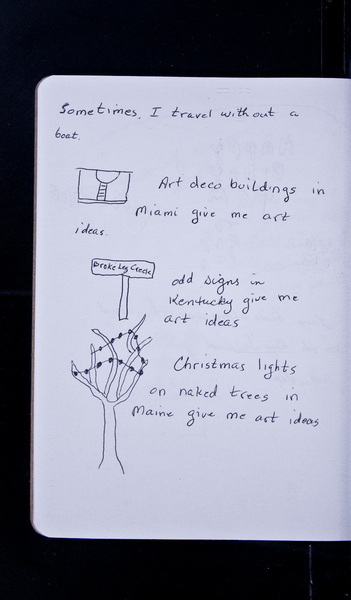 Sometimes, I travel without a
boat.
Art deco buildings in
Miami give me art
ideas.
Broke Leg Creek
odd signs in
Kentucky give me
art ideas
Christmas lights
on naked trees in
Maine give me art ideas